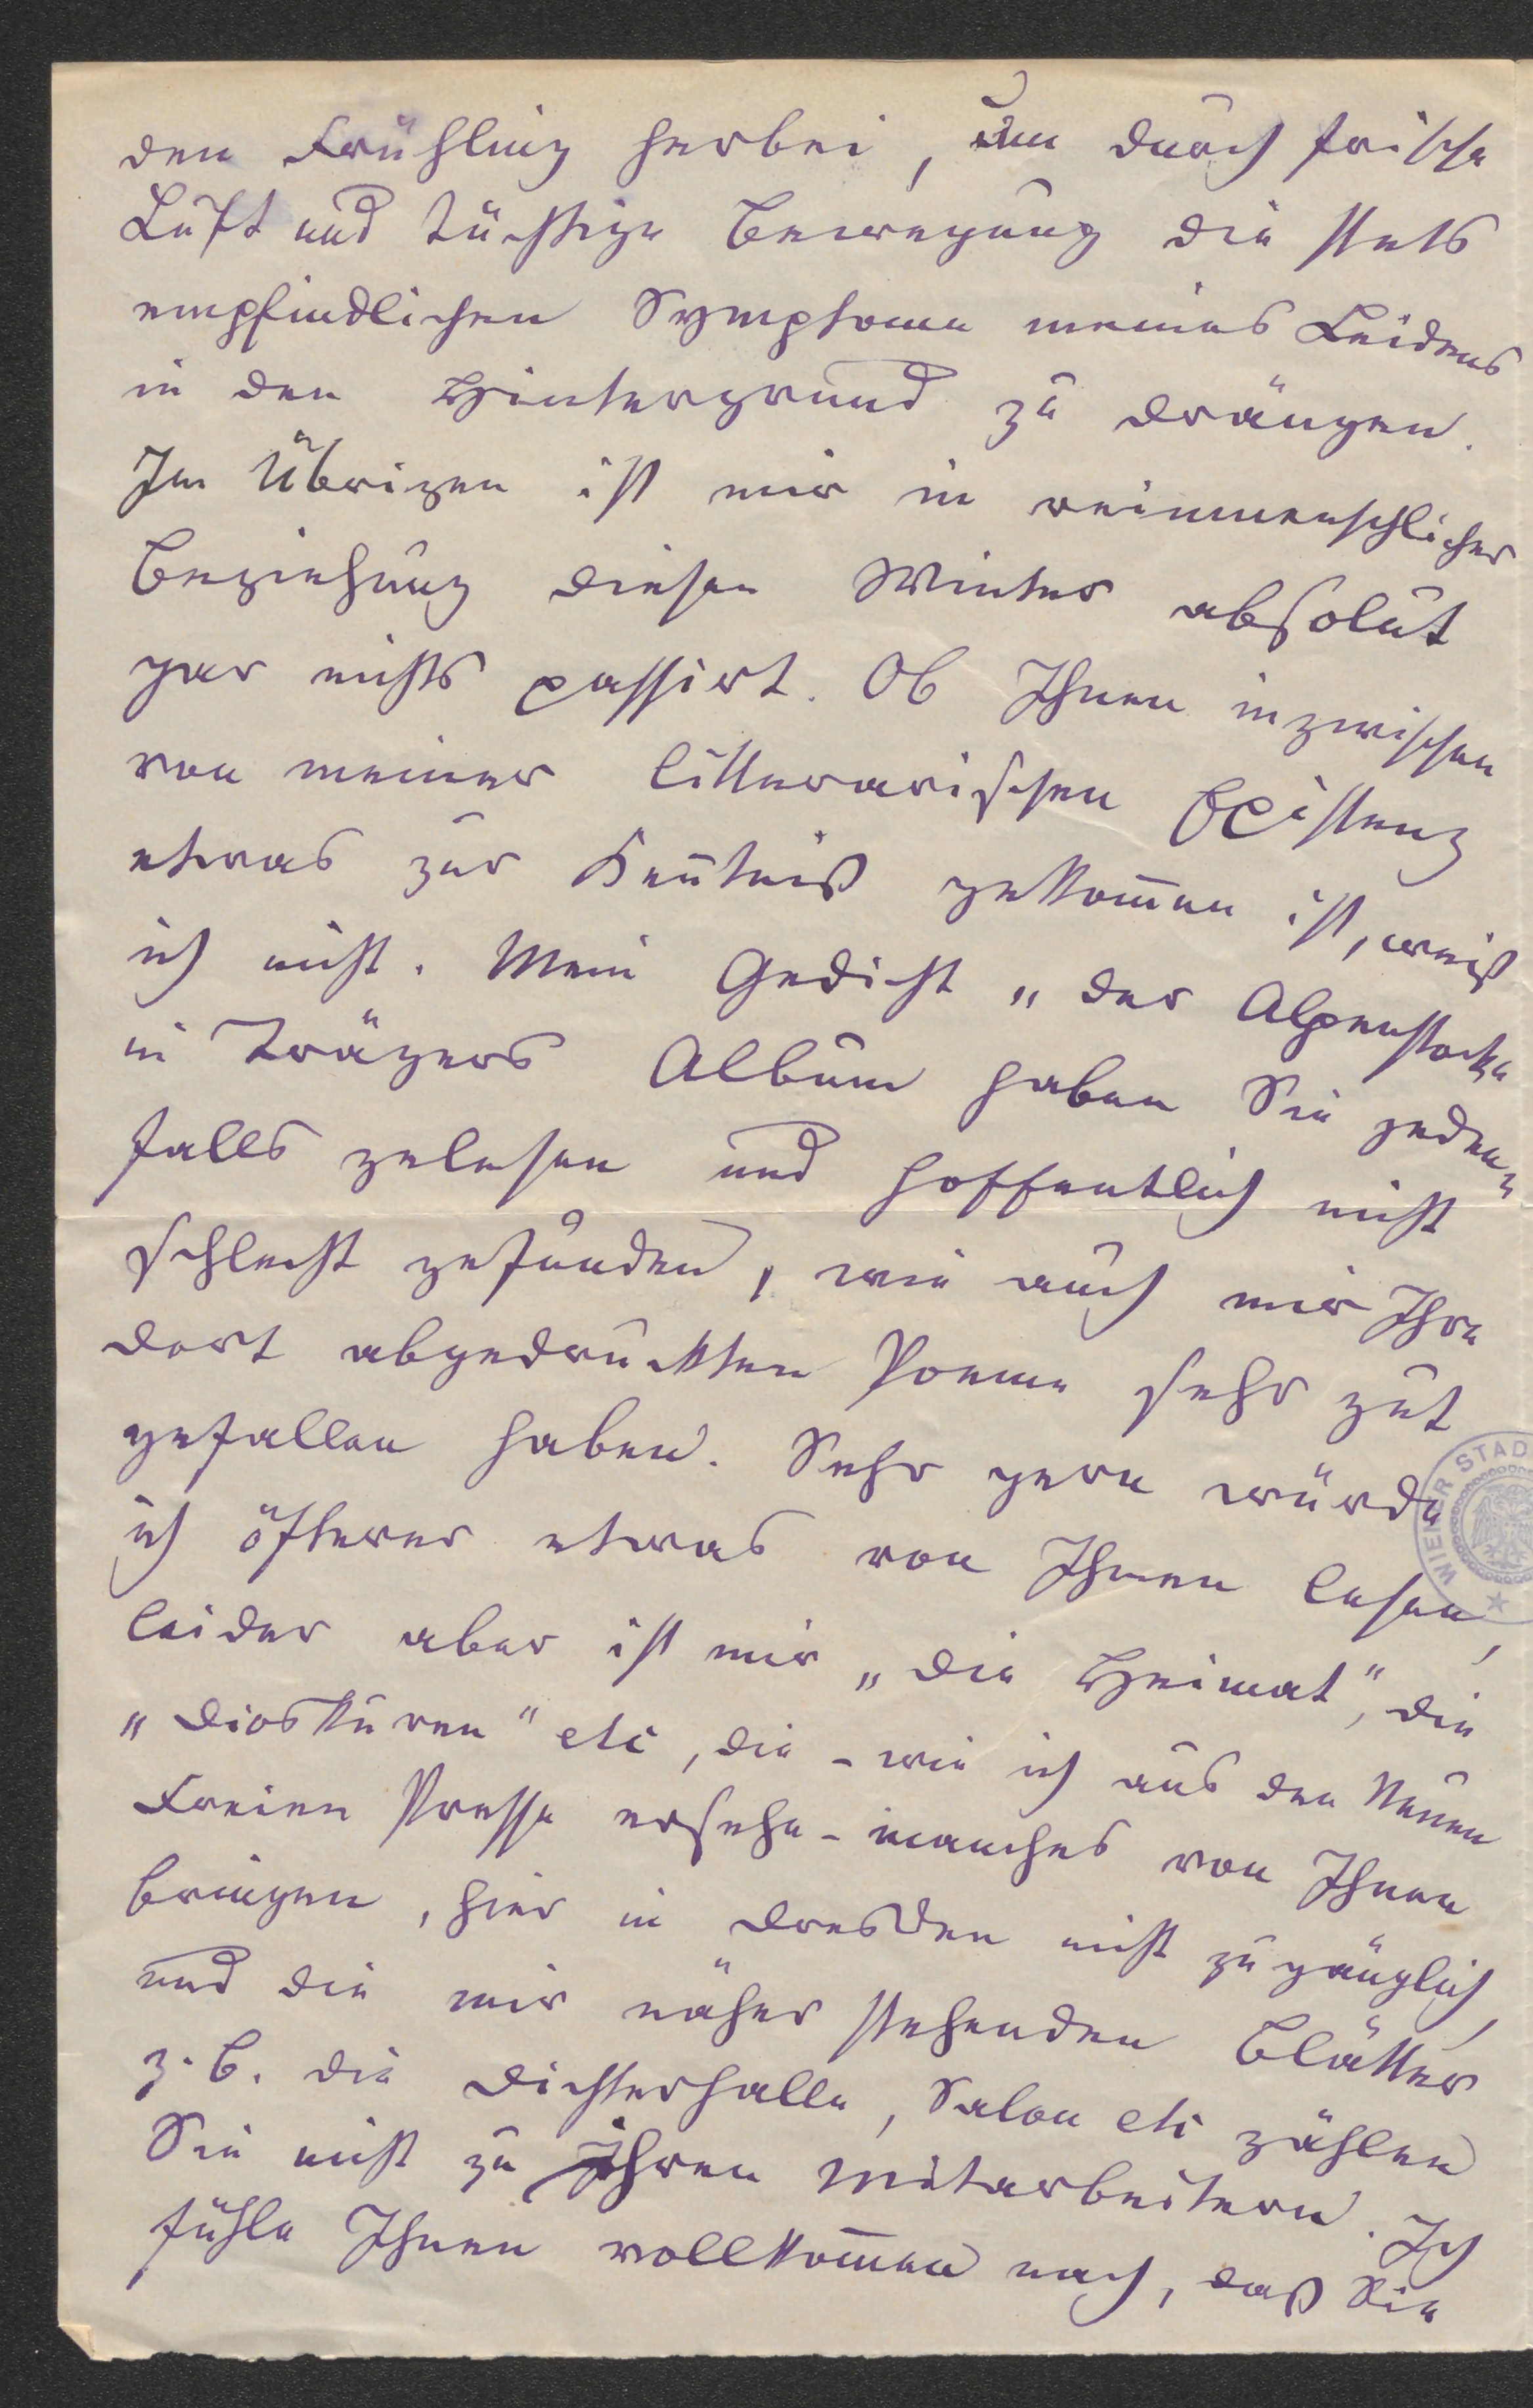 den Frühling herbei, um durch frische
Luft und tüchtige Bewegung die stets
empfindlichen Symptome meines Leidens
in den Hintergrund zu drängen.
Im Übrigen ist mir in reinmenschlicher
Beziehung diesen Winter absolut
gar nichts passirt. Ob Ihnen inzwischen
von meiner litterarischen Existenz
etwas zur Keñtniß gekom̃en ist, weiß
ich nicht. Mein Gedicht „der Alpenstock"
in Trägers Album haben Sie jeden=
falls gelesen und hoffentlich nicht
schlecht gefunden, wie auch mir Ihre
dort abgedruckten Poeme sehr gut
gefallen haben. Sehr gern würde
ich öfterer etwas von Ihnen lesen,
leider aber ist mir „die Heimat", die
„Dioskuren" etc, die - wie ich aus der Neuen
Freien Presse ersehe - manches von Ihnen
bringen, hier in Dresden nicht zugänglich,
und die mir näher stehenden Blätter
z. B. die Dichterhalle, Salon etc zählen
Sie nicht zu ihren Mitarbeitern. Ich
fühle Ihnen vollkom̃en nach, daß Sie
WIENER STAD